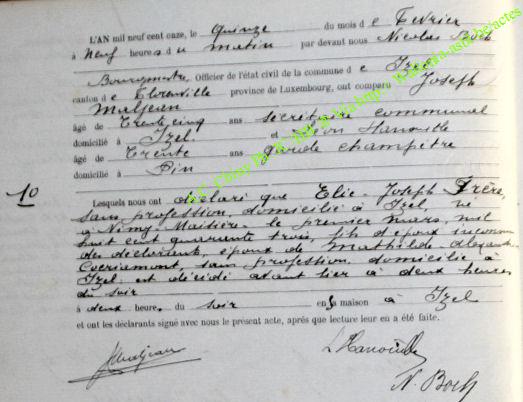 L'AN mil neuf cent onze, le quinze du mois de Février
à neuf heures du matin par devant nous Nicolas Boch
Bourgmestre Officier de l'état civil de la commune de Izel
canton de Florenville province de Luxembourg, ont comparu Joseph
Maljean
âgé de Trente cinq ans secrétaire communal
domicilié à Izel et Léon Hanoville
âgé de Trente ans garde champêtre
domicilié à Pin
10
Lesquels nous ont déclaré que Elie-Joseph Frère,
sans profession, domicilié à Izel, né
à Nimy-Maisières le premier mars, mil
huit cent quarante trois, fils d'epoux inconnus
des déclarants, époux de Mathilde
sans profession, domicilié à
Izel est décédé avant hier à deux heures
du soir
à deux heures du soir en sa maison à Izel
et ont les déclarants signé avec nous le présent acte, après que lecture leur en a été faite.
JMaljean
N. Boch